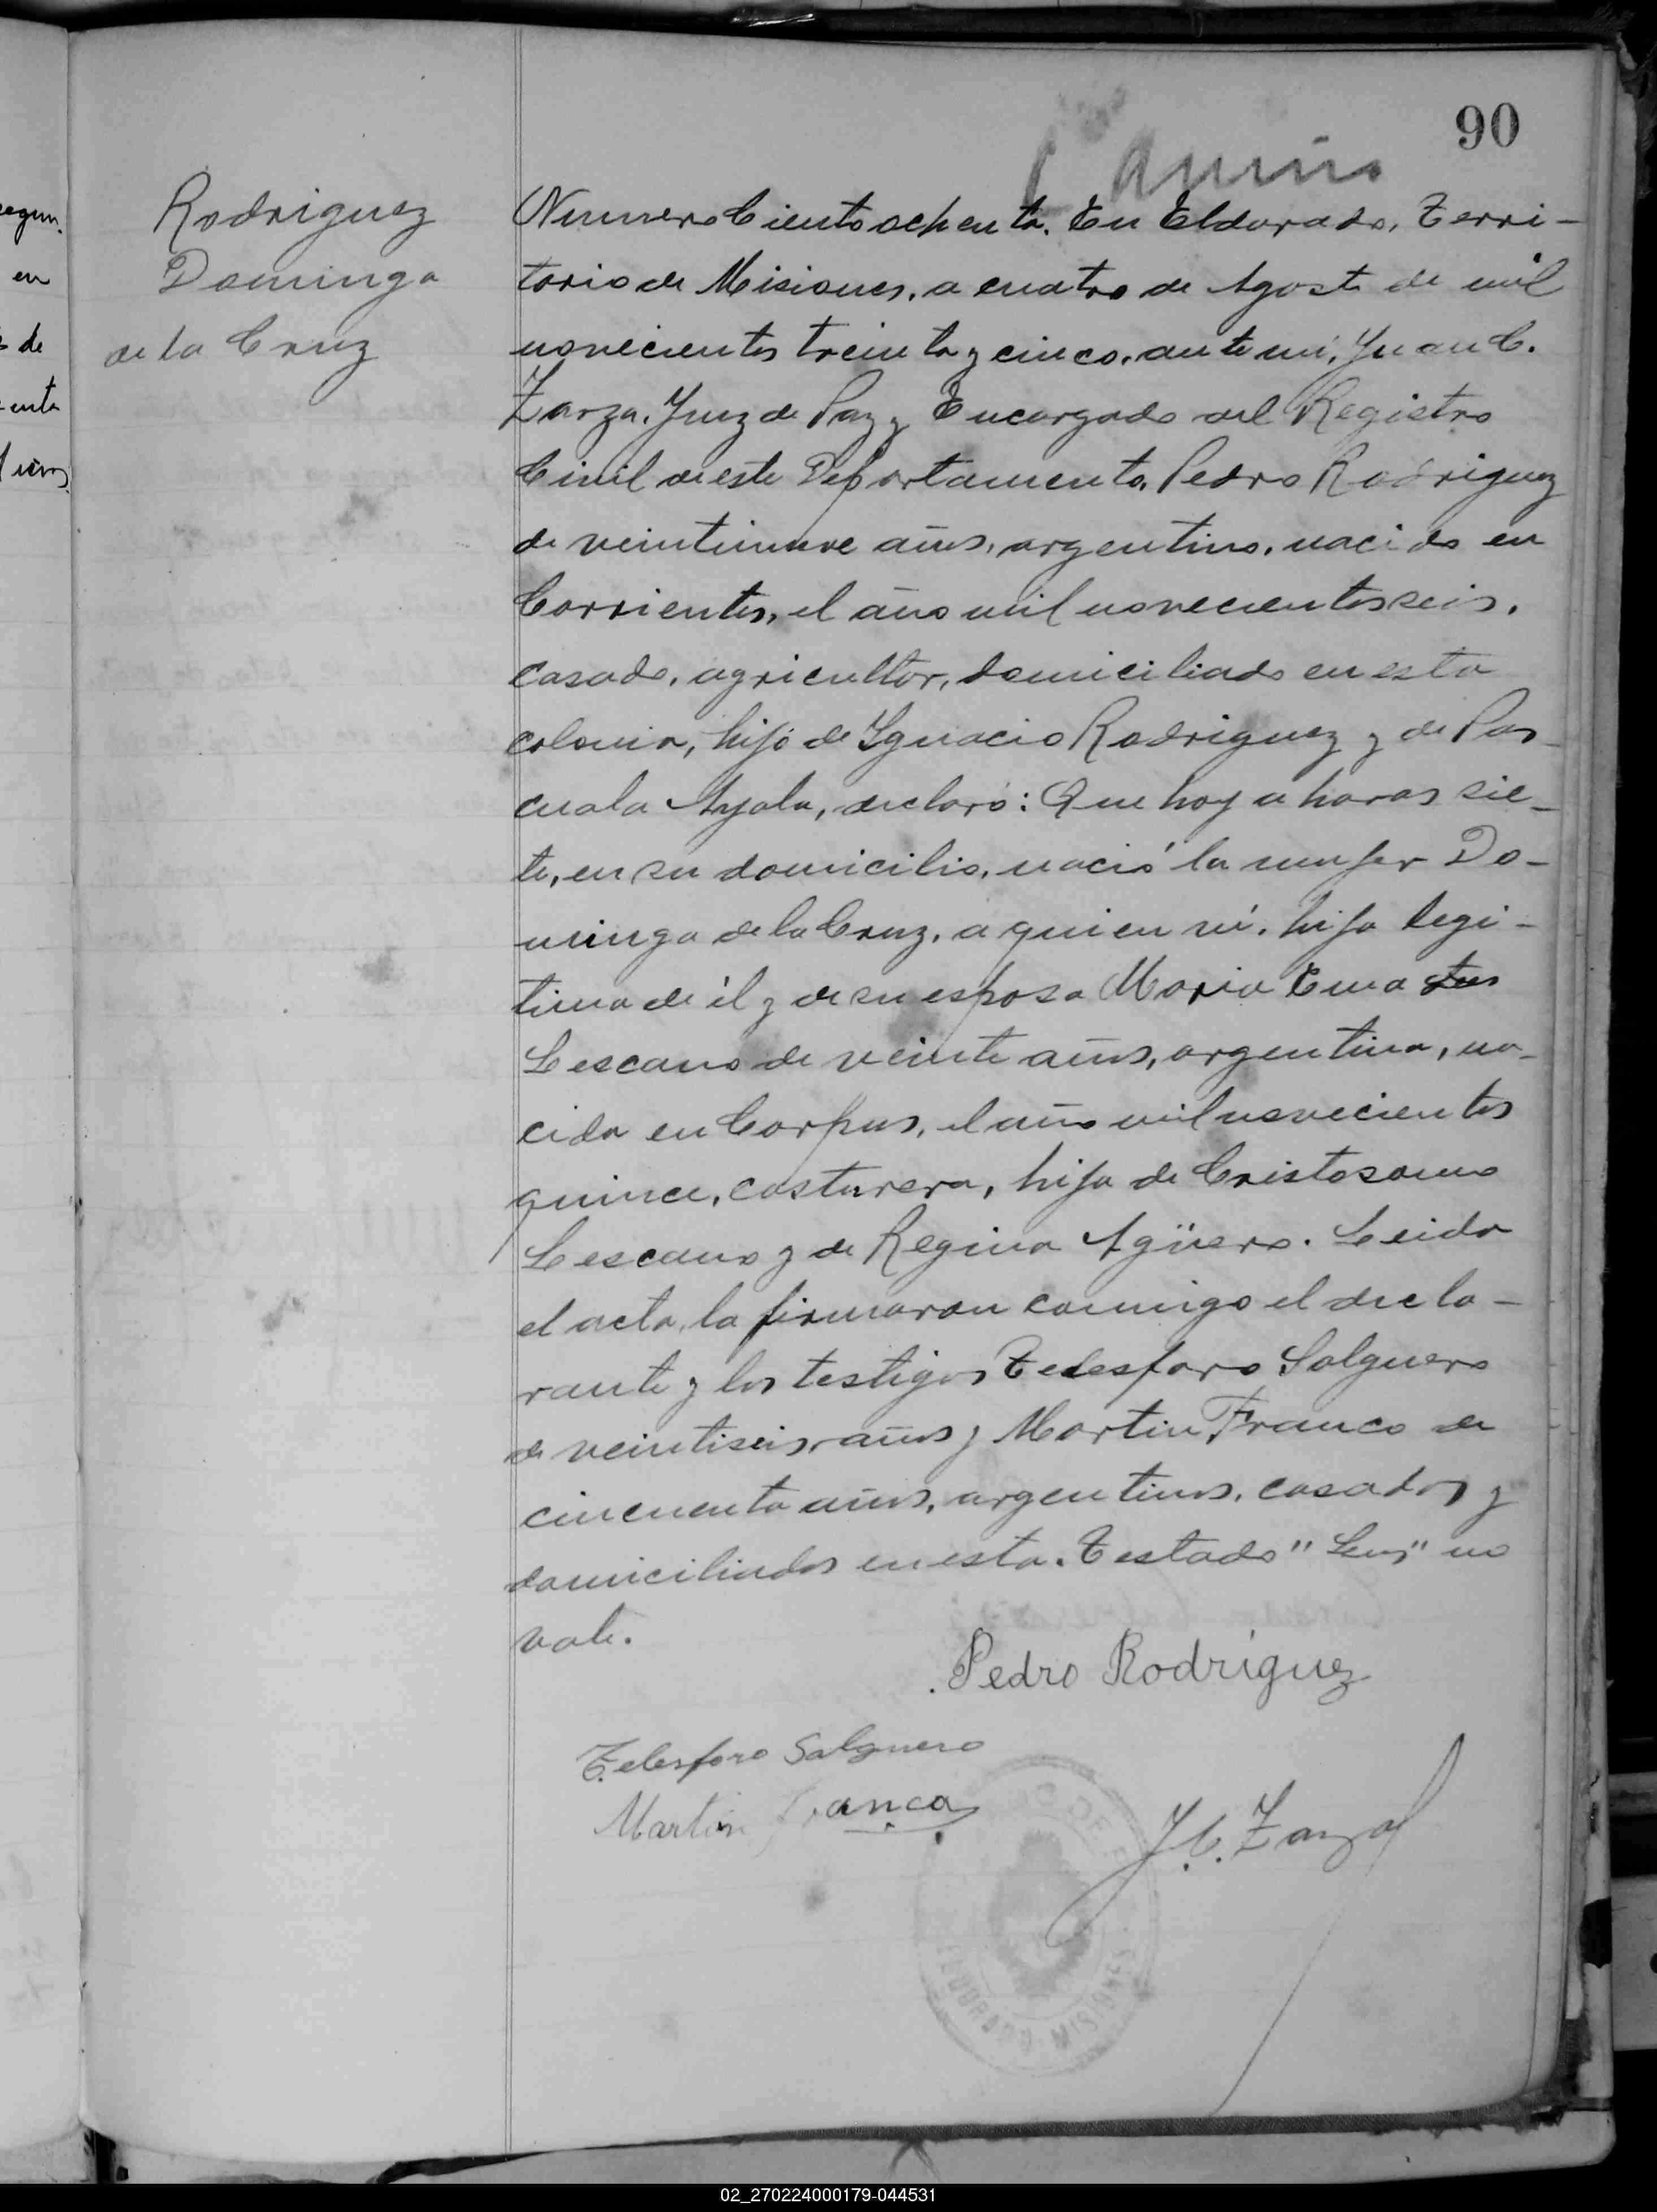 90
Rodriguez
Dominga
de la Cruz
Numero Ciento ochenta. En Eldorado, Terri-
torio de Misiones, a cuatro de Agosto de mil
novecientos treinta y cinco, ante mi, Juan C.
Zarza, Juez de Paz y Encargado del Registro
Civil de este Departamento, Pedro Rodriguez
de veintinueve años, argentino, nacido en
Corrientes, el año mil novecientos seis,
casado, agricultor, domiciliado en esta
colonia, hijo de Ygnacio Rodriguez y de Pas-
cuala Ayala, declaró: Que hoy a horas sie-
te, en su domicilio, nació la mujer Do-
minga de la Cruz, a quien ví, hija legi-
tima de él y de su esposa Maria Ema Les
Lescano de veinte años, argentina, na-
cida en Corpus, el año mil novecientos
quince, costurera, hija de Cristosomo
Lescano y de Regina Agüero. Leida
el acta, la firmaron conmigo el decla-
rante y los testigos Telesforo Salguero
de veintiseis años y Martin Franco de
cincuenta años, argentinos, casados y
domiciliados en esta. Testado "Les" no
vale.
Pedro Rodriguez
Telesforo Salguero
Martin Franco
J. C. Zarza
ELDORADO MISIONES
egun
en
de
enta
02_270224000179-044531